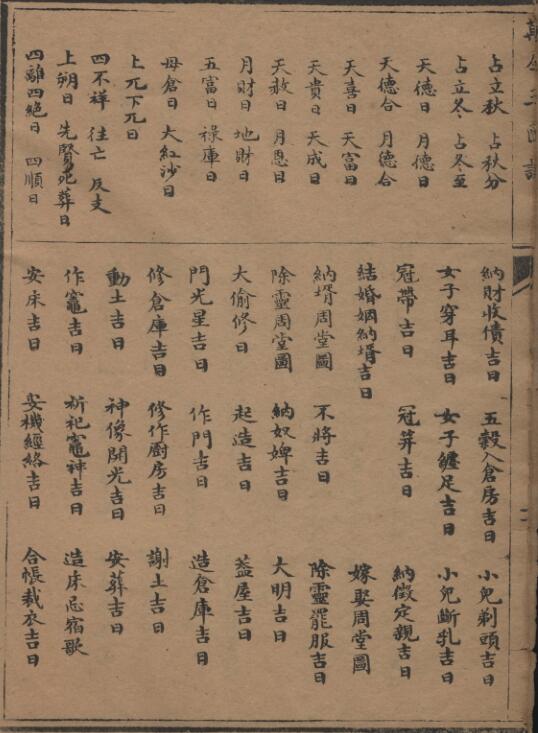 占立秋 占秋分
占立冬 占冬至
天德日 月德日
天德合 月德合
天喜日 天富日
天貴日 天成日
天赦日 月恩日
月財日 地財日
五富日 祿庫日
母倉日 大紅沙日
上兀下兀日
四不祥 往亡 反支
上朔日 先賢死葬日
四離四絕日 四順日
納財收債吉日 五穀入倉房吉日 小兒剃頭吉日
女子穿耳吉日 女子纏足吉日 小兒斷乳吉日
冠帶吉日 冠笄吉日 納徵定親吉日
結婚姻納壻吉日 嫁娶周堂圖
納壻周堂圖 不將吉日 除靈罷服吉日
除靈周堂圖 納奴婢吉日 大明吉日
大偷修日 起造吉日 蓋屋吉日
門光星吉日 作門吉日 造倉庫吉日
修倉庫吉日 修作廚房吉日 謝土吉日
動土吉日 神像開光吉日 安葬吉日
作竈吉日 祈祀竈神吉日 造床忌宿歌
安床吉日 安機經絡吉日 合帳裁衣吉日
二